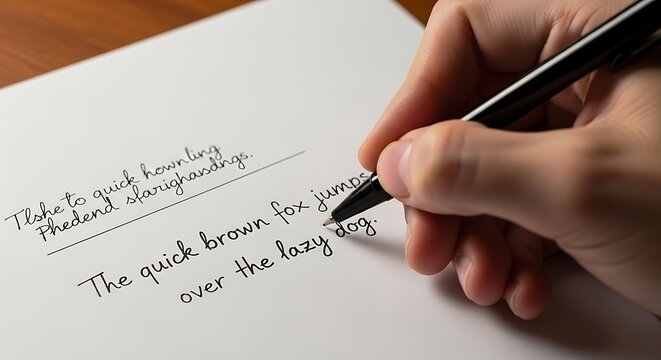 Tlshe to quick hownling
Phedend sfarighasdngs.
The quick brown fox jumps
over the lazy dog.